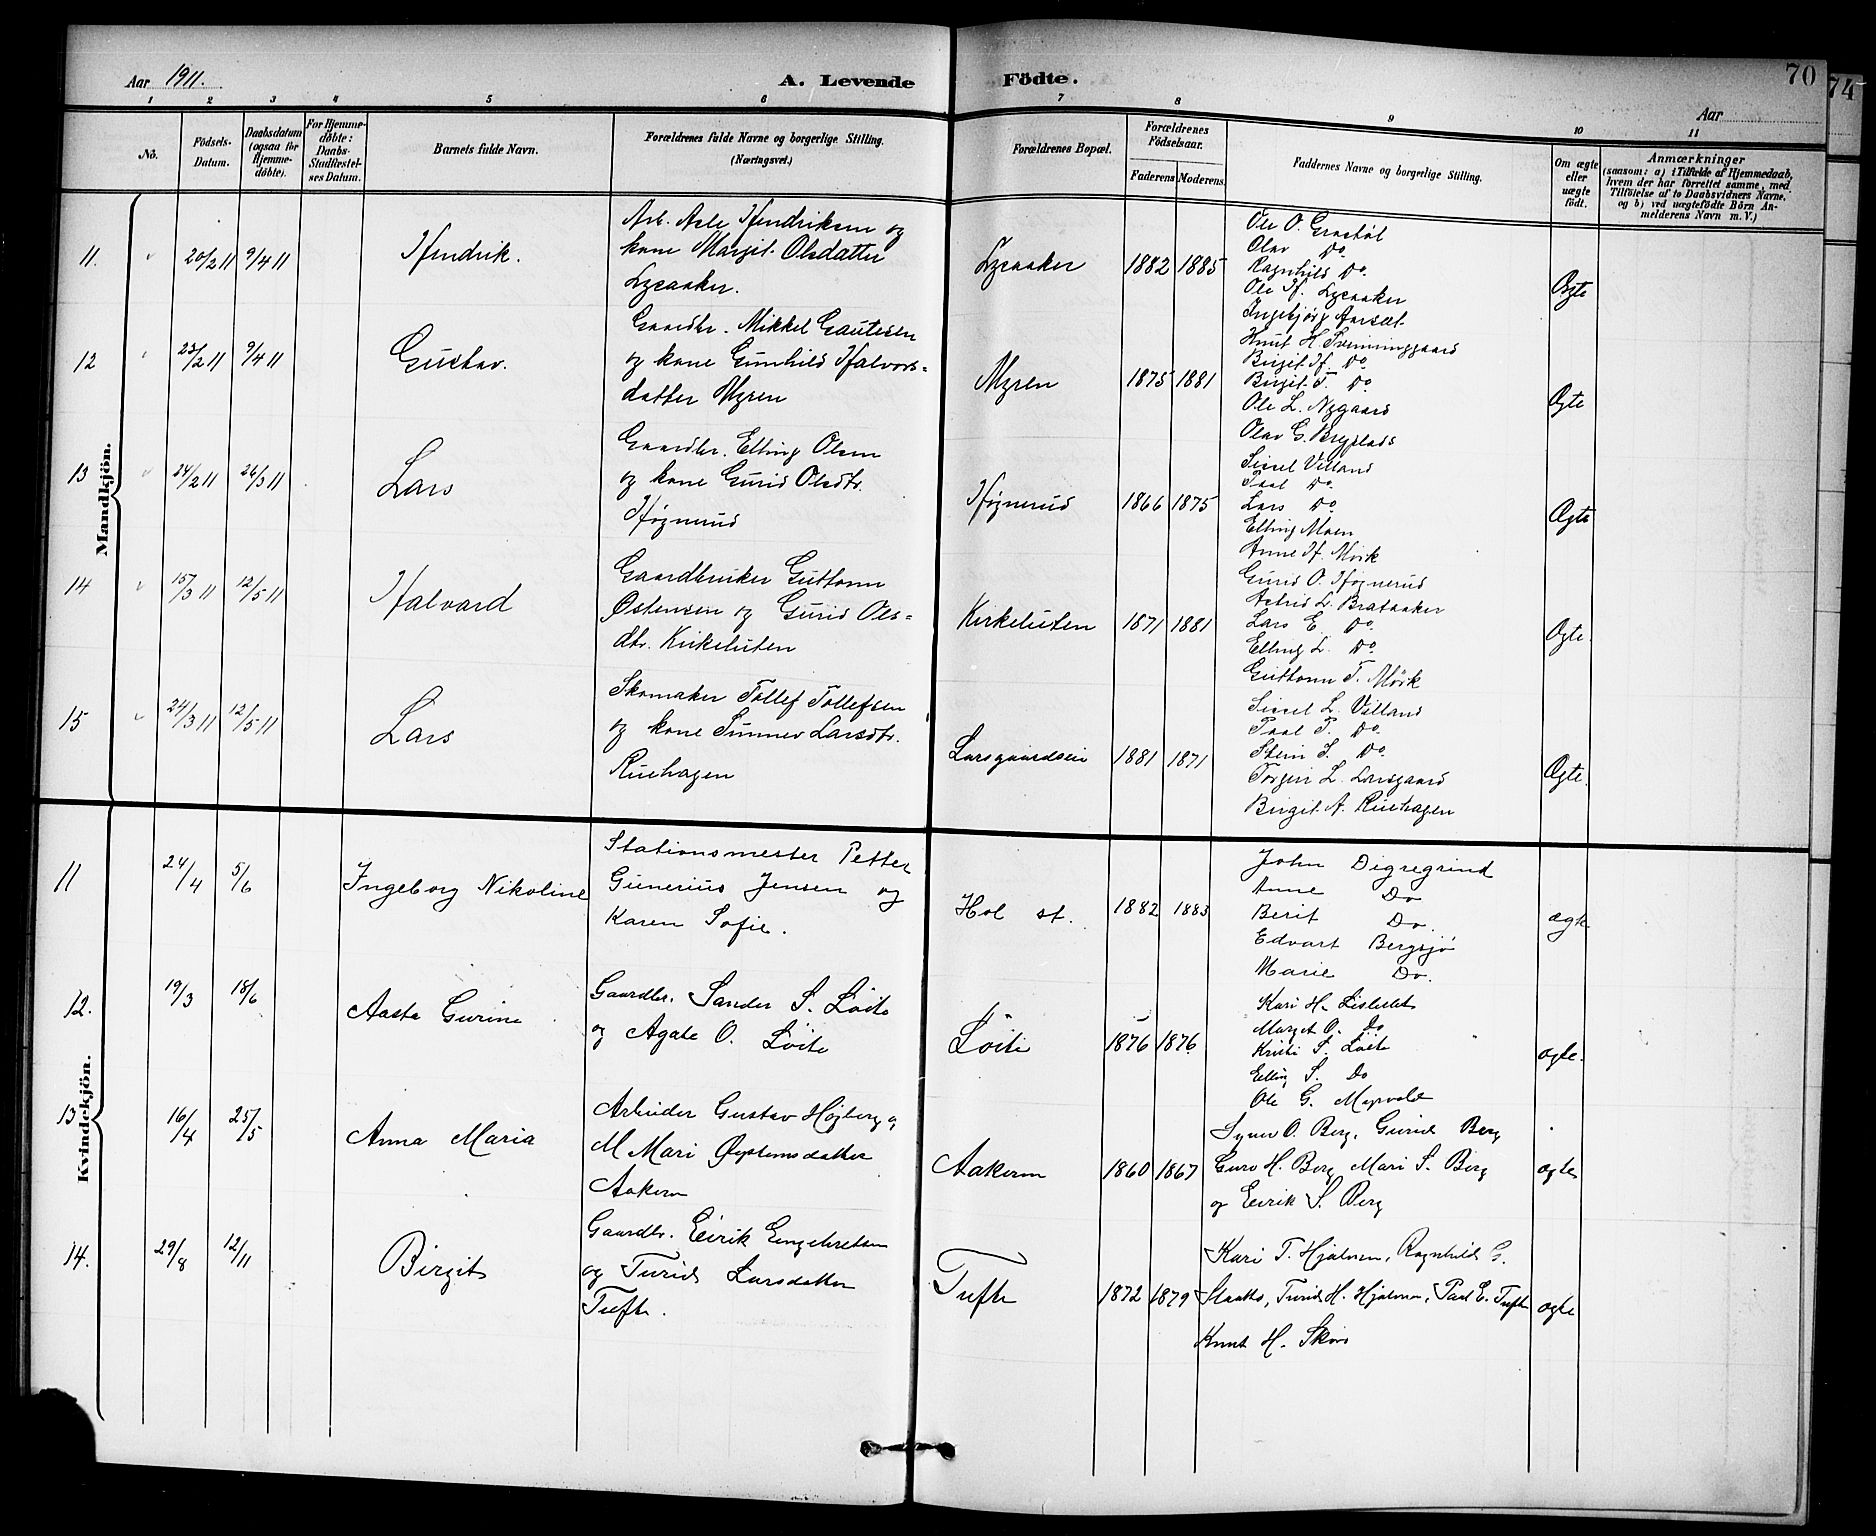 Aar 1911.
A. Levende Födte.
70
74
Aar
1 2 3 4 5 6 7 8 9 10 11
No.
Födsels-Datum.
Daabsdatum (ogsaa for Hjemme-döbte).
For Hjemme-döbte: Daabs-Stadfæstel-ses Datum.
Barnets fulde Navn.
Forældrenes fulde Navne og borgerlige Stilling. (Næringsvei.)
Forældrenes Bopæl.
Forældrenes Födselsaar.
Faderens. Moderens.
Faddernes Navne og borgerlige Stilling.
Om ægte eller uægte födt.
Anmærkninger
(saasom: a) i Tilfælde af Hjemmedaab,
hvem der har forrettet samme, med
Tilföielse af to Daabsvidners Navne.
og b) ved uægtefödte Börn An-
melderens Navn m. V.)
Mandkjön.
11. 20/2 11 9/4 11 Hendrik.
Arb. Asle Hendriksen og
kone Margit Olsdatter
Lyeaaker.
Lyeaaker 1882 1885
Ole O. Grøstøl
Olav Do
Ragnhild Do.
Ole H. Lyeaaker
Ingebjørg Aarsæt.
Ægte
12 23/2 11 9/4 11 Gustav.
Gaardbr. Mikkel Gautesen
og kone Gunhild Halvors-
datter Myren
Myren 1875 1881
Knut H. Svenninggaard
Birgit H. Do
Birgit T. Do
Ole L. Nygaard
Olav G.
Ægte
13 24/2 11 26/3 11 Lars
Gaardbr. Elling Olsen
og kone Gurid Olsdtr.
Høgnerud
Høgnerud 1866 1875
Sissel Villand
Paal Do
Lars Do
Elling Moen
Anne H. Mørk
Ægte
14 15/3 11 12/5 11 Halvard
Gaardbruker Guttorm
Østensen og Gurid Ols-
dtr. Kirkeluten
Kirkeluten 1871 1881
Gurid O. Høgnerud
Astrid L. Brataaker
Lars E. Do.
Elling L. Do
Guttorm T. Mørk
Ægte.
15 24/3 11 12/5 11 Lars
Skomaker Tollef Tollefsen
og kone Sunnev Larsdtr.
Ruehagen
Larsgaardseie 1881 1871
Sissel L. Villand
Paal P. Do.
Stein S. Do
Torgeir L. Larsgaard
Birgit A. Ruehagen
Ægte.
Kvindekjön.
11 24/4 5/6 Ingeborg Nikoline
Stationsmester Petter
Gunerius Jensen og
Karen Sofie.
Hol st. 1882 1883
John Digregrind
Anne Do
Berit Do.
Edvart Bergsjø
Marie Do.
ægte
12. 19/3 18/6 Aasta Gurine
Gaardbr. Sander S. Löite
og Agate O. Löite
Löite 1876 1876
Kari H. Lislelet
Marget O. Do
Kristi S. Löite
Elling S. Do
Ole G. Myrvold
ægte.
13 16/4 25/5 Anna Maria
Arbeider Gustav Højberg og
M Mari Øystensdatter
Aakern
Aakern 1860 1867
Syver O. Berg, Gurid Berg
Guro H. Berg Mari S. Berg
og Eirik S. Berg
ægte
14. 29/8 12/11 Birgit
Gaardbr. Eirik Engebretsen
og Turid Larsdatter
Tufte.
Tufte 1872 1879
Kari T. Hjalmen, Ragnhild G.
Slaatto, Turid H. Hjalmen, Paul E. Tufte
Knut H. Skoro
ægte